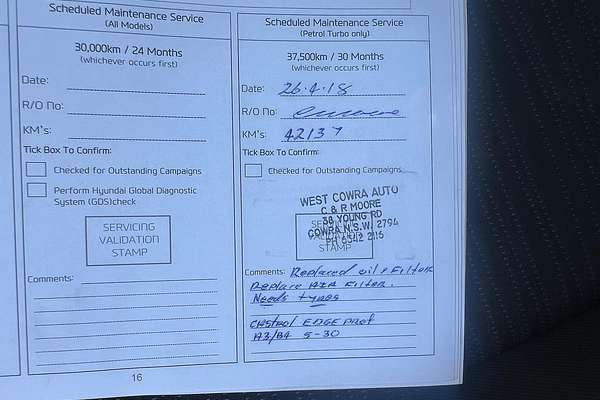 Scheduled Maintenance Service
(All Models)
30,000km / 24 Months
(whichever occurs first)
Date:
R/O No:
KM's:
Tick Box To Confirm:
Checked for Outstanding Campaigns
Perform Hyundai Global Diagnostic
System (GDS)check
SERVICING
VALIDATION
STAMP
Comments:
16
Scheduled Maintenance Service
(Petrol Turbo only)
37,500km / 30 Months
(whichever occurs first)
Date: 26.4.18
R/O No:
KM's: 42137
Tick Box To Confirm:
Checked for Outstanding Campaigns
WEST COWRA AUTO
C & R MOORE
38 YOUNG RD
COWRA N.S.W. 2794
PH 6342 2116
Comments: Replaced oil & Filter
Replace AIR Filter.
Needs tyres
CASTROL EDGE PROF
A3/B4 5-30